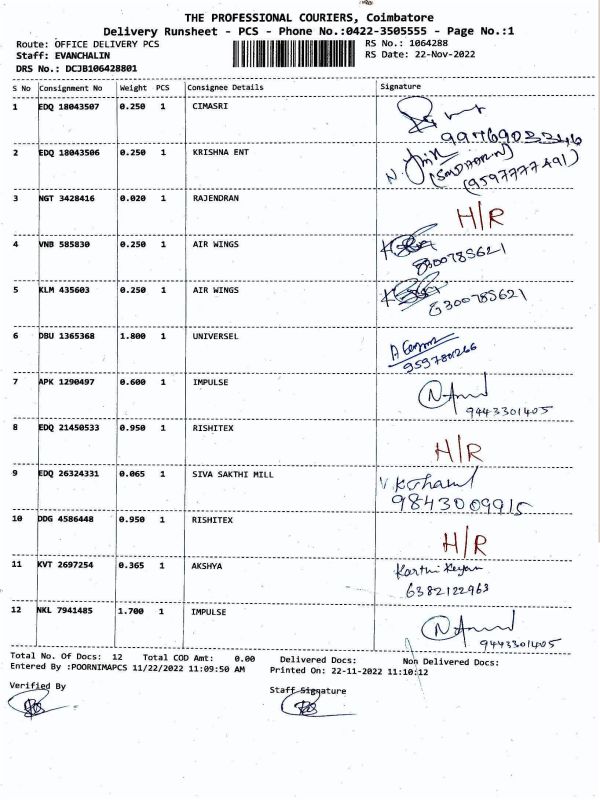 THE PROFESSIONAL COURIERS, Coimbatore
Delivery Runsheet - PCS - Phone No.:0422-3505555 - Page No.:1
Route: OFFICE DELIVERY PCS RS No.: 1064288
Staff: EVANCHALIN RS Date: 22-Nov-2022
DRS No.: DCJB106428801
S No Consignment No Weight PCS Consignee Details Signature
1 EDQ 18043507 0.250 1 CIMASRI
2 EDQ 18043506 0.250 1 KRISHNA ENT
(9597777491)
3 NGT 3428416 0.020 1 RAJENDRAN H/R
4 VNB 585830 0.250 1 AIR WINGS
6300785621
5 KLM 435603 0.250 1 AIR WINGS
6300785621
6 DBU 1365368 1.800 1 UNIVERSEL
7 APK 1290497 0.600 1 IMPULSE
9443301405
8 EDQ 21450533 0.950 1 RISHITEX H/R
9 EDQ 26324331 0.065 1 SIVA SAKTHI MILL
9843009915
10 DDG 4586448 0.950 1 RISHITEX H/R
11 KVT 2697254 0.365 1 AKSHYA Karthi Keyan
6382122963
12 NKL 7941485 1.700 1 IMPULSE
9443301405
Total No. Of Docs: 12 Total COD Amt: 0.00 Delivered Docs: Non Delivered Docs:
Entered By :POORNIMAPCS 11/22/2022 11:09:50 AM Printed On: 22-11-2022 11:10:12
Verified By Staff Signature